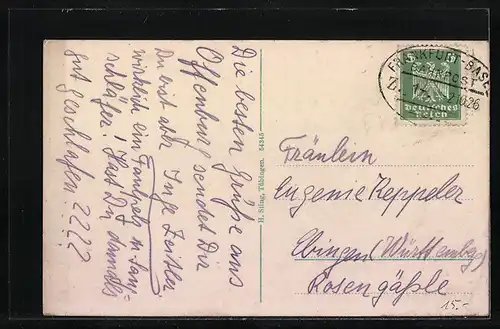 Die besten Grüße aus
Offenburg sendet Dir
Du bist aber Inge Zeitler
wirklich ein Fangselg u. Lang-
schläfer! Hast Du damals
gut geschlafen ????
H. Sting, Tübingen. 54345
FRANKFURT-BASEL
BAHNPOST
Deutsches
Reich
Fräulein
Eugenie Keppeler
Ebingen (Württemberg)
Rosengäßle
15.-